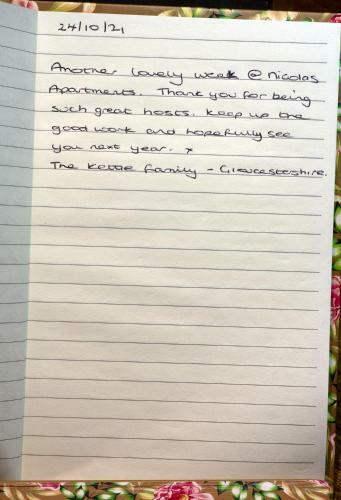 24/10/21
Another lovely week @ Nicolas
Apartments. Thank you for being
such great hosts. Keep up the
good work and hopefully see
you next year. x
The family - Gloucestershire.